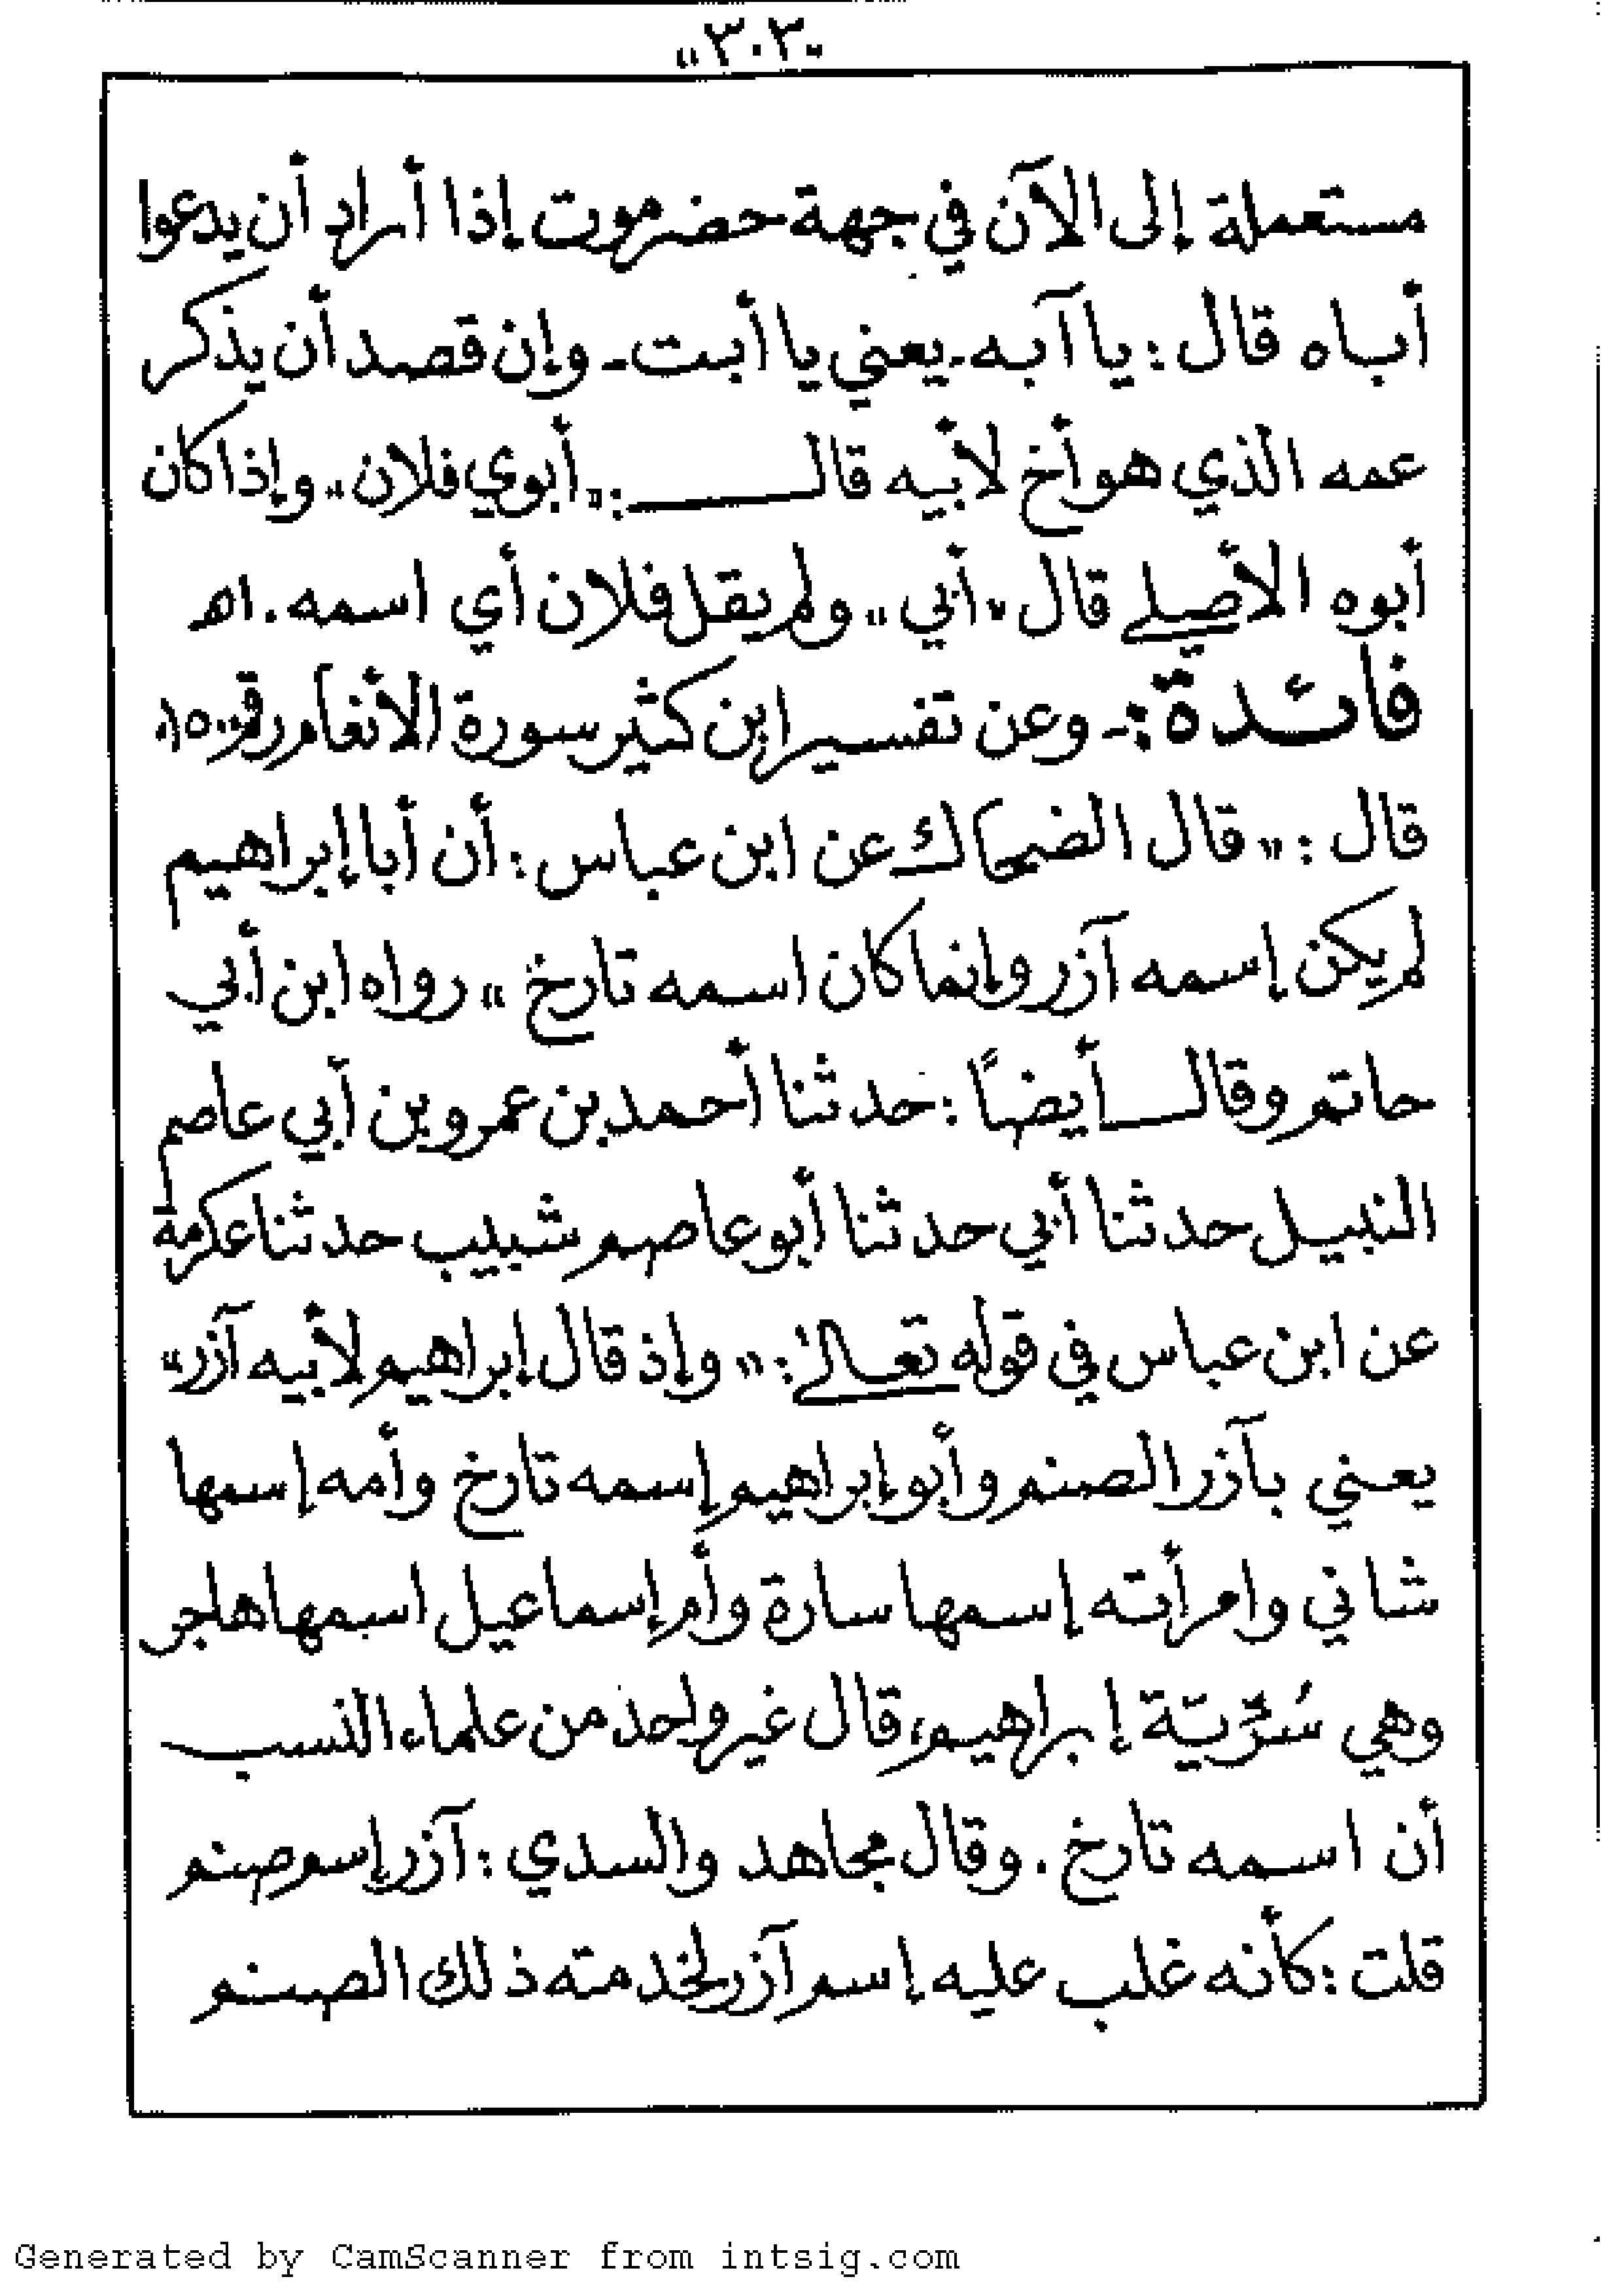 "٣٠٢"
مستعملة إلى الآن في جهة حضرموت إذا أراد أن يدعوا
أباه قال: يا آبه - يعني يا أبت - وإن قصد أن يذكر
عمه الذي هو أخ لأبيه قال: "أبوي فلان" وإذا كان
أبوه الأصلي قال "أبي" ولم يقل فلان أي اسمه. اه
فائدة:- وعن تفسير ابن كثير سورة الأنعام رقم ١٥٠
قال: "قال الضحاك عن ابن عباس: أن أبا إبراهيم
لم يكن إسمه آزر وإنما كان اسمه تارخ" رواه ابن أبي
حاتم وقال أيضًا: حدثنا أحمد بن عمرو بن أبي عاصم
النبيل حدثنا أبي حدثنا أبو عاصم شبيب حدثنا عكرمة
عن ابن عباس في قوله تعالى: "وإذ قال إبراهيم لأبيه آزر"
يعني بآزر الصنم وأبو إبراهيم إسمه تارخ وأمه إسمها
شاني وامرأته إسمها سارة وأم إسماعيل اسمها هاجر
وهي سُرّيّة إبراهيم، قال غير واحد من علماء النسب
أن اسمه تارخ. وقال مجاهد والسدي: آزر إسم صنم
قلت: كأنه غلب عليه إسم آزر لخدمته ذلك الصنم
Generated by CamScanner from intsig.com